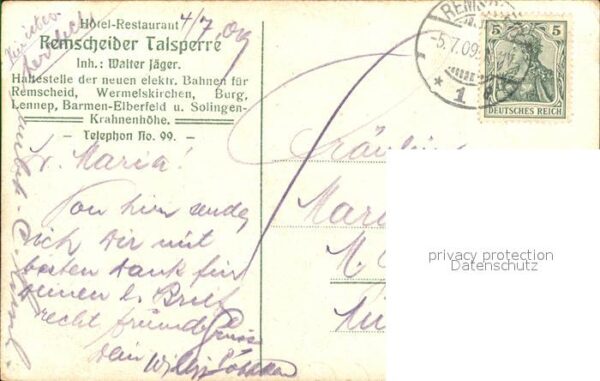 Hôtel-Restaurant
Remscheider Talsperre
Inh.: Walter Jäger.
Haltestelle der neuen elektr. Bahnen für
Remscheid, Wermelskirchen, Burg,
Lennep, Barmen-Elberfeld u. Solingen-
Krahnenhöhe.
Telephon No. 99.
4/7.09
L. Maria!
Von hier sende
ich Dir mit
besten Dank für
deinen l. Brief
recht freundl. Grüsse
Dein Willy
REMSCH
5.7.09.
* 1 e
5 5
DEUTSCHES REICH
Fräulein
Maria
M.
privacy protection
Datenschutz